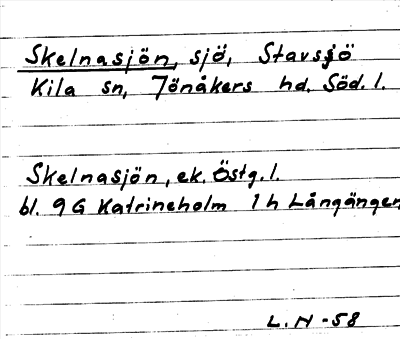 Skelnasjön, sjö, Stavsjö
Kila sn, Jönåkers hd. Söd. l.
Skelnasjön, ek. Östg. l.
bl. 9 G Katrineholm 1 h Långängen
L. N - 58